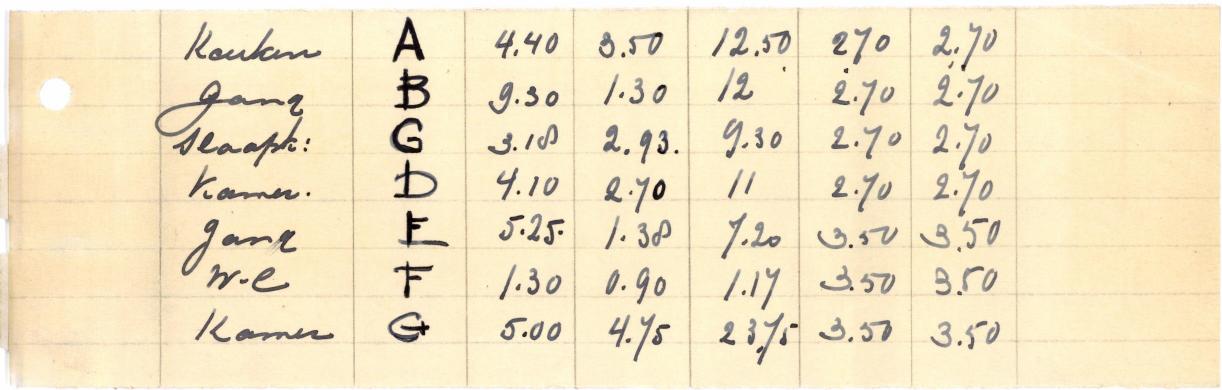 Keuken A 4.40 3.50 12.50 270 2.70
Gang B 9.30 1.30 12 2.70 2.70
Slaapk: G 3.18 2.93. 9.30 2.70 2.70
Kamer. D 4.10 2.70 11 2.70 2.70
gang E 5.25. 1.38 7.20 3.50 3.50
W-C F 1.30 0.90 1.17 3.50 3.50
Kamer G 5.00 4.75 23.75 3.50 3.50